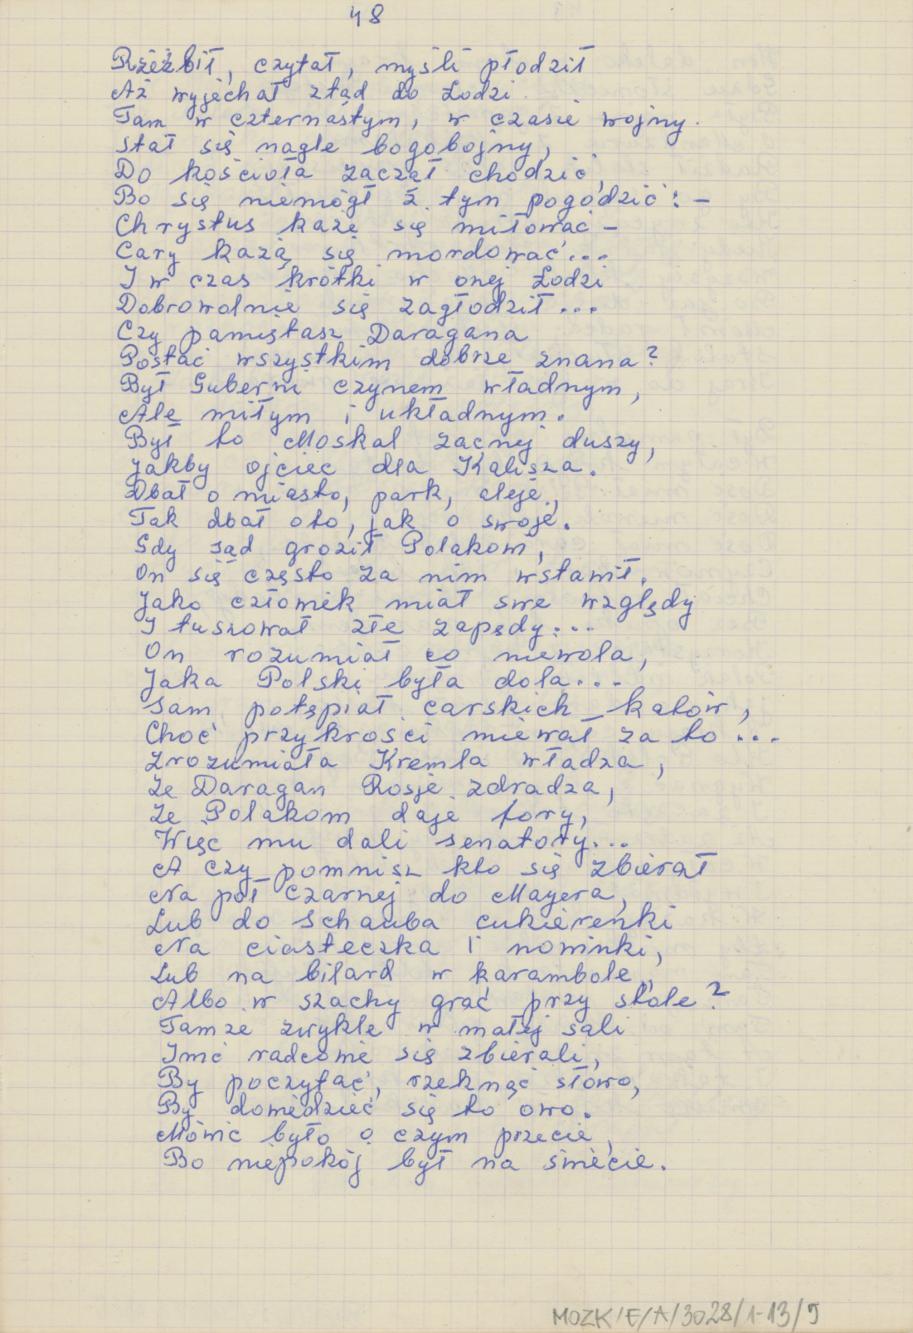 48
Rzeźbił, czytał, myśli płodził
Aż wyjechał ztąd do Łodzi
Tam w czternastym, w czasie wojny.
Stał się nagle bogobojny,
Do kościoła zaczął chodzić,
Bo się niemógł z tym pogodzić: -
Chrystus każe się miłować -
Cary każą się mordować...
I w czas krótki w onej Łodzi
Dobrowolnie się zagłodził...
Czy pamiętasz Daragana
Postać wszystkim dobrze znana?
Był Guberni czynem władnym,
Ale miłym i układnym.
Był to Moskal zacnej duszy,
Jakby ojciec dla Kalisza.
Dbał o miasto, park, aleje,
Tak dbał oto, jak o swoje.
Gdy sąd groził Polakom,
On się często za nim wstawił.
Jako człowiek miał swe względy
I tuszował złe zapędy...
On rozumiał co niewola,
Jaka Polski była dola...
Sam potępiał carskich katów,
Choć przykrości miewał za to...
Zrozumiała Kremla władza,
Że Daragan Rosję zdradza,
Że Polakom daje fory,
Więc mu dali senatory...
A czy pomnisz kto się zbierał
Na pół czarnej do Mayera,
Lub do Schauba cukierenki
Na ciasteczka i nowinki,
Lub na bilard w karambole,
Albo w szachy grać przy stole?
Tamże zwykle w małej sali
Imć radcowie się zbierali,
By poczytać, rzeknąć słowo,
By dowiedzieć się to owo.
Mówić było o czym przecie,
Bo niepokój był na świecie.
MOZK/E/A/3028/1-13/9